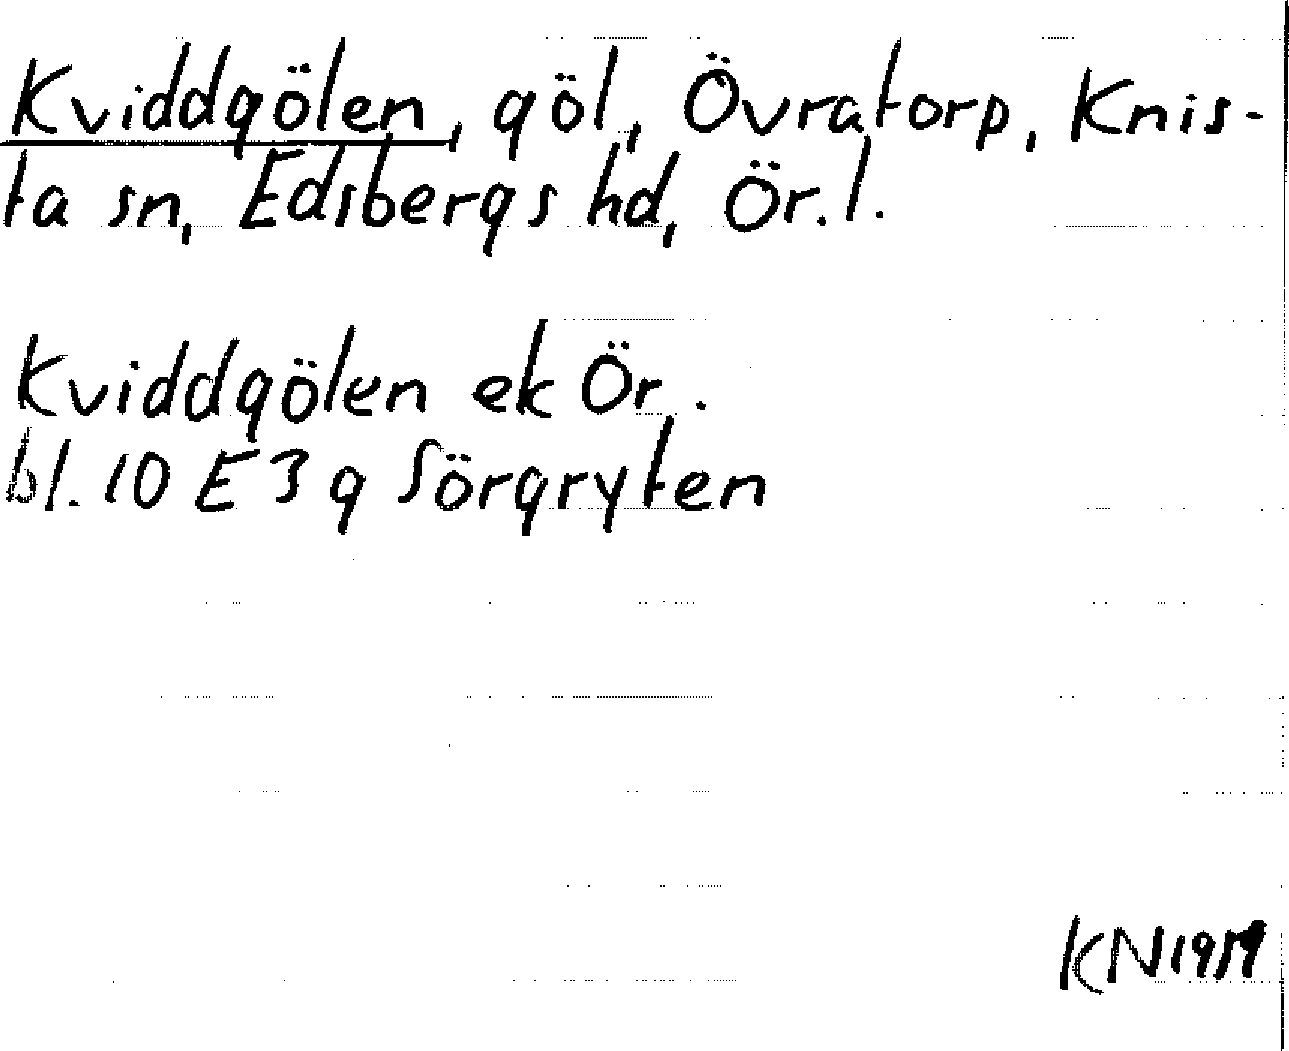 Kviddgölen, göl, Övratorp, Knis-
ta sn, Edsbergs hd, Ör. l.
Kviddgölen ek Ör.
bl. 10 E 3 g Sörgryten
KN